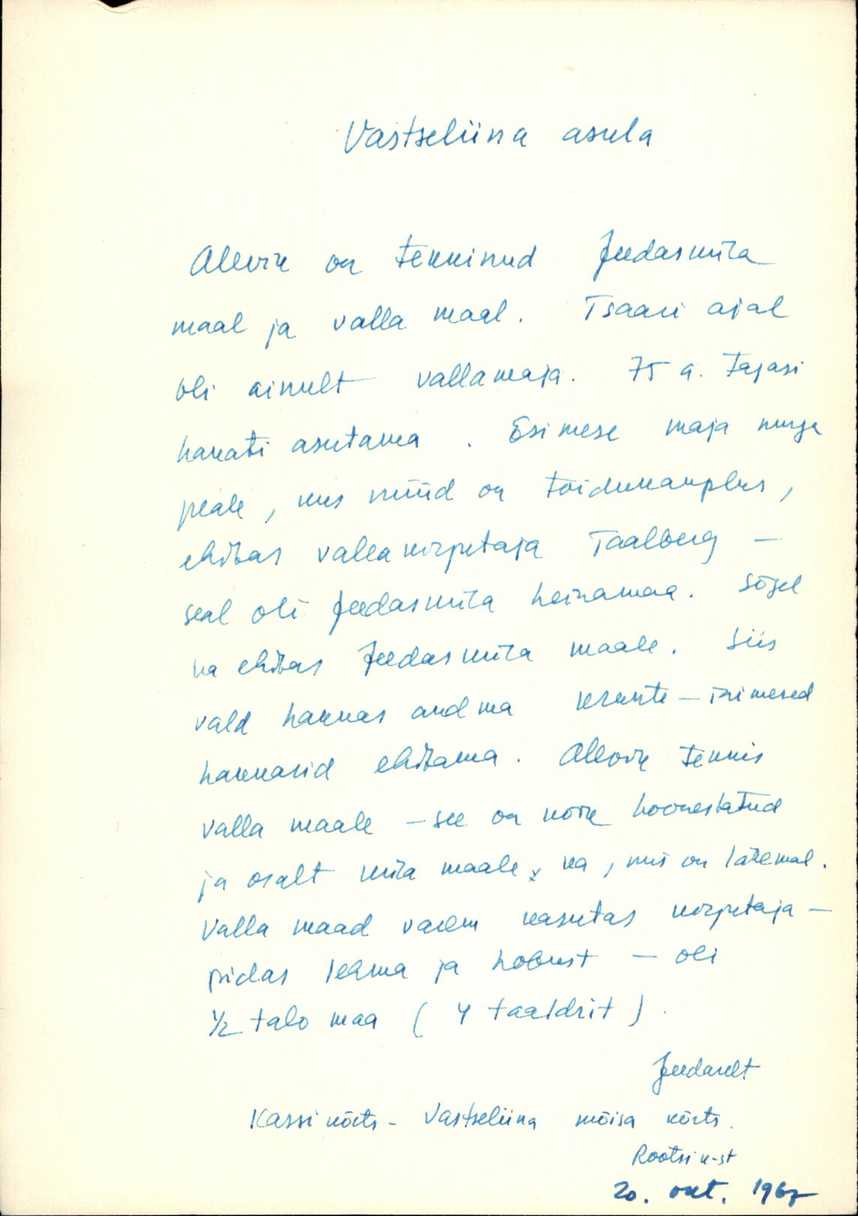 Vastseliina asula
Alevik on tekkinud Jeedasküla
maal ja valla maal. Tsaari ajal
oli ainult vallamaja. 75 a. tagasi
hakati asutama. Esimese maja nurga
peale, kus nüüd on toidukauplus,
ehitas vallakirjutaja Taalberg –
seal oli Jeedasküla heinamaa. Sõjel
ka ehitas Jeedasküla maale. Siis
vald hakkas andma krunte – inimesed
hakkasid ehitama. Alevik tekkis
valla maale – see on kõik hoonestatud
ja osalt küla maale ka, mis on lähemal.
Valla maad varem kasutas kirjutaja –
pidas lehma ja hobust – oli
1/2 talo maa (4 taaldrit).
Jeedaselt
Kassi kõrts – Vastseliina mõisa kõrts.
Rootsi k-st
20. okt. 1967